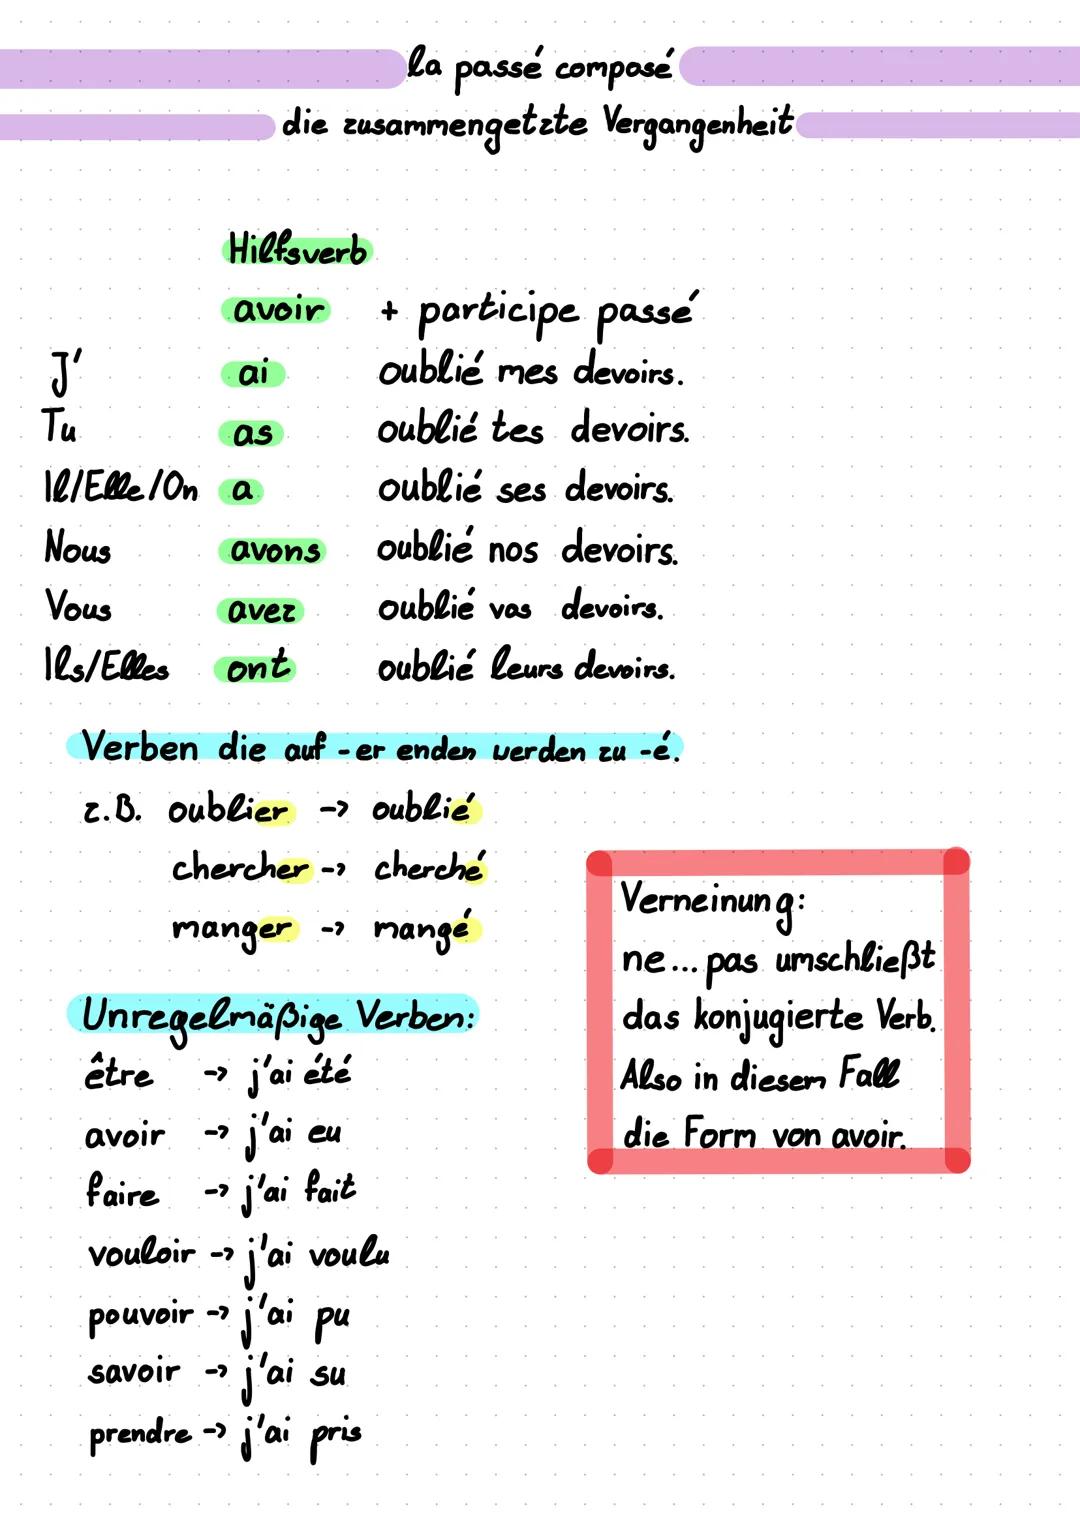 la passé composé
die zusammengetzte Vergangenheit
Hilfsverb
avoir + participe passé
J' ai oublié mes devoirs.
Tu as oublié tes devoirs.
Il/Elle/On a oublié ses devoirs.
Nous avons oublié nos devoirs.
Vous avez oublié vas devoirs.
Ils/Elles ont oublié leurs devoirs.
Verben die auf -er enden werden zu -é.
z.B. oublier -> oublié
chercher -> cherché
manger -> mangé
Verneinung:
ne... pas umschließt
das konjugierte Verb.
Also in diesem Fall
die Form von avoir.
Unregelmäßige Verben:
être -> j'ai été
avoir -> j'ai eu
faire -> j'ai fait
vouloir -> j'ai voulu
pouvoir -> j'ai pu
savoir -> j'ai su
prendre -> j'ai pris